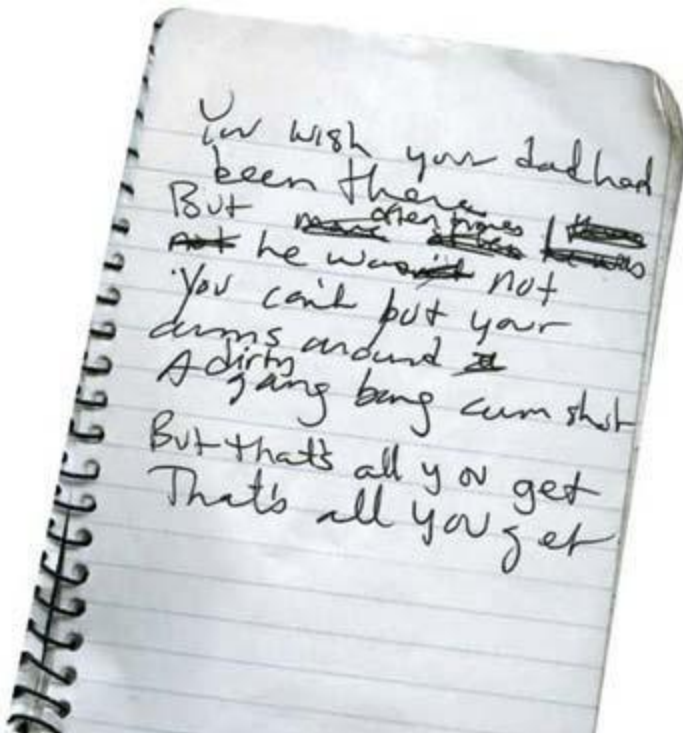 You wish your dad had
been there
But often times
he was not
You can't put your
arms around
A dirty
gang bang cum shot
But that's all you get
That's all you get